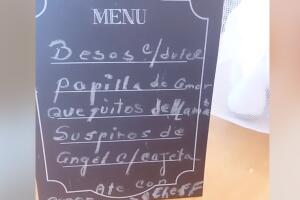 MENU
Besos c/dulce
Papilla de Amor
Quesitos de
Suspiros de
angel c/cajeta
Ate con